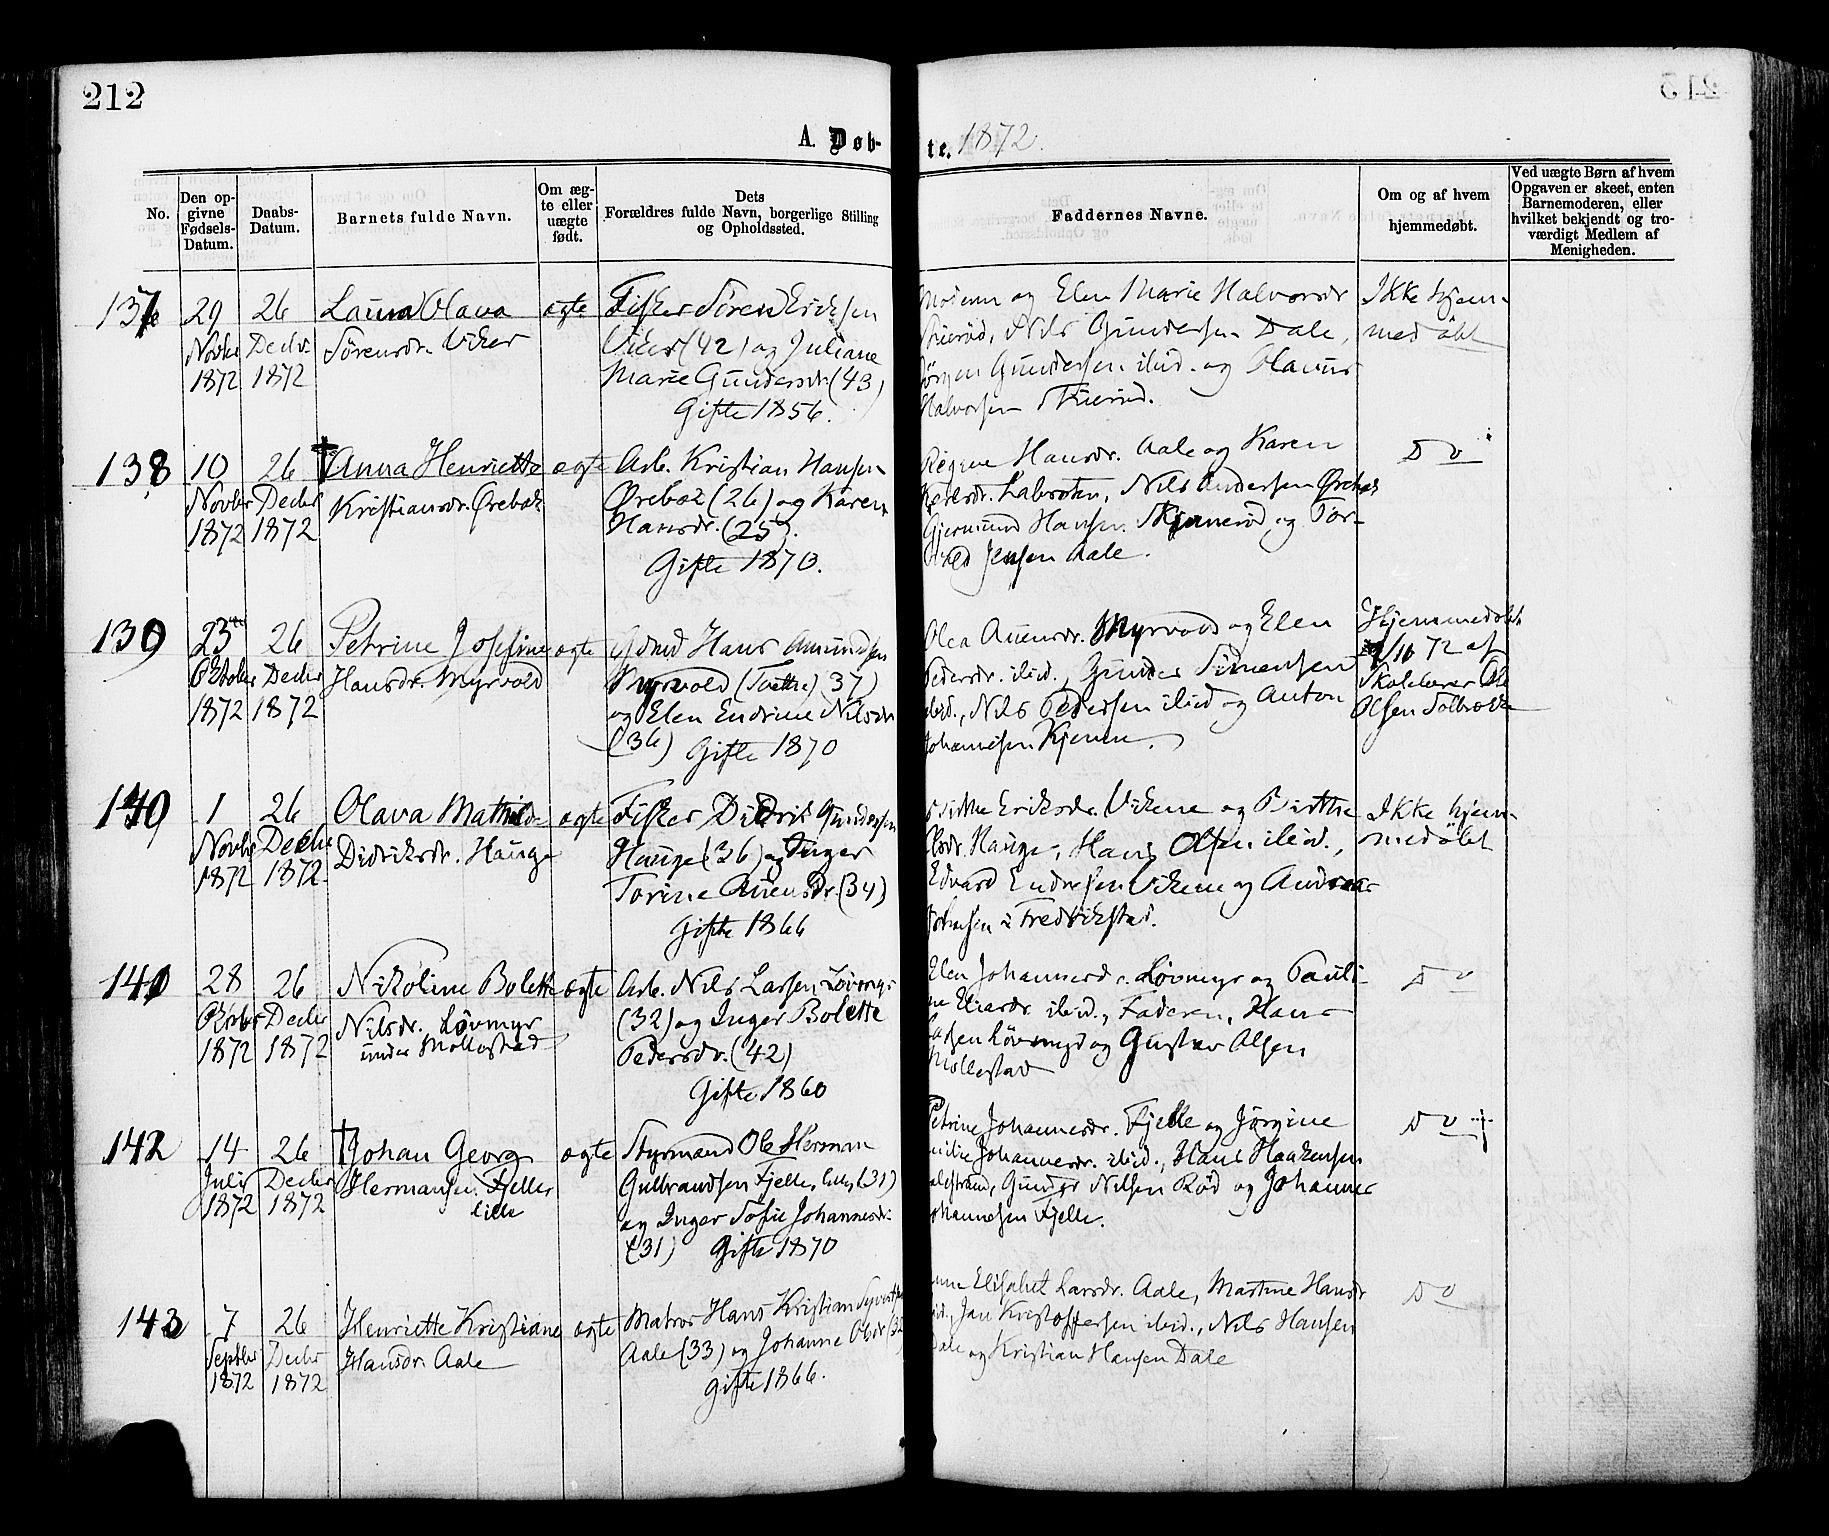 212
A. Døb-
te. 1872.
No.
Den op-
givne
Fødsels-
Datum.
Daabs-
Datum.
Barnets fulde Navn.
Om æg-
te eller
uægte
født.
Dets
Forældres fulde Navn, borgerlige Stilling
og Opholdssted.
Faddernes Navne.
Om og af hvem
hjemmedøbt.
Ved uægte Børn af hvem
Opgaven er skeet, enten
Barnemoderen, eller
hvilket bekjendt og tro-
værdigt Medlem af
Menigheden.
137
29
Novbr
1872
26
Decbr
1872
Laura Olava
Sørensdr. Viker
ægte
Fisker Søren Eriksen
Viker (42) og Juliane
Marie Gundersdr. (43)
Gifte 1856.
Moderen og Elen Marie Halvorsdr
Skierød, Nils Gundersen Dale,
Jørgen Gundersen ibid. og Olaves
Halvorsen Skierød.
Ikke hjem-
medøbt
138
10
Novbr
1872
26
Decbr
1872
† Anna Henriette
Kristiansdr. Ørebæk
ægte
Arb. Kristian Hansen
Ørebæk (26) og Karen
Hansdr. (25).
Gifte 1870.
Regine Hansdr. Aale og Karen
Karlsdr. Nils Andersen Ørebæk
Gjermund Hansen og Tor-
vald Jensen Aale.
Do
139
23
Oktober
1872
26
Decbr
1872
Petrine Josefine
Hansdr. Myrvold
ægte
Gdmd Hans Amundsen
Myrvold (37)
og Elen Endrine Nilsdr
(36) Gifte 1870
Olea Auensdr. Myrvold og Elen
Pedersdr. ibid., Gunder Simensen
ibid., Nils Pedersen ibid og Anton
Johannesen Kjenne.
Hjemmedøbt
/10 72 af
Skolelærer Ole
Olsen
140
1
Novbr
1872
26
Decbr
1872
Olava Mathilde
Didriksdr. Hauge
ægte
Fisker Didrik Gundersen
Hauge (36) og Inger
Torine Auensdr. (34)
Gifte 1866
Birthe Eriksdr. Vikene og Birthe
Olsdr. Hauge, Hans Olsen ibid.,
Edvard Endresen Vikene og Andreas
Johnsen i Fredrikstad.
Ikke hjem-
medøbt
141
28
Oktober
1872
26
Decbr
1872
Nikoline Bolette
Nilsdr. Løvmyr
under Møllestad
ægte
Arb. Nils Larsen Løvmyr
(32) og Inger Bolette
Pedersdr. (42)
Gifte 1860
Elen Johannesdr. Løvmyr og Pauli-
ne Eliasdr ibid., Faderen, Hans
Larsen Løvmyr og Gustav Olsen
Møllestad
Do
142
14
Juli
1872
26
Decbr
1872
† Johan Georg
Hermansen Fjelle
lille
ægte
Styrmand Ole Herman
Gulbrandsen Fjelle lille (31)
og Inger Sofie Johannesdr.
(31) Gifte 1870
Petrine Johannesdr. Fjelle og Jørgine
Emilie Johannesdr. ibid., Hans Haakensen
Gunder Nilsen Rød og Johannes
Johannesen Fjelle.
Do †
143
7
Septbr
1872
26
Decbr
1872
Henriette Kristiane
Hansdr. Aale
ægte
Matros Hans Kristian Syvertsen
Aale (33) og Johanne Olsdr (32)
Gifte 1866.
Anne Elisabet Larsdr. Aale, Martine Hansdr
ibid., Jan Kristoffersen ibid., Nils Hansen
Dale og Kristian Hansen Dale
Do